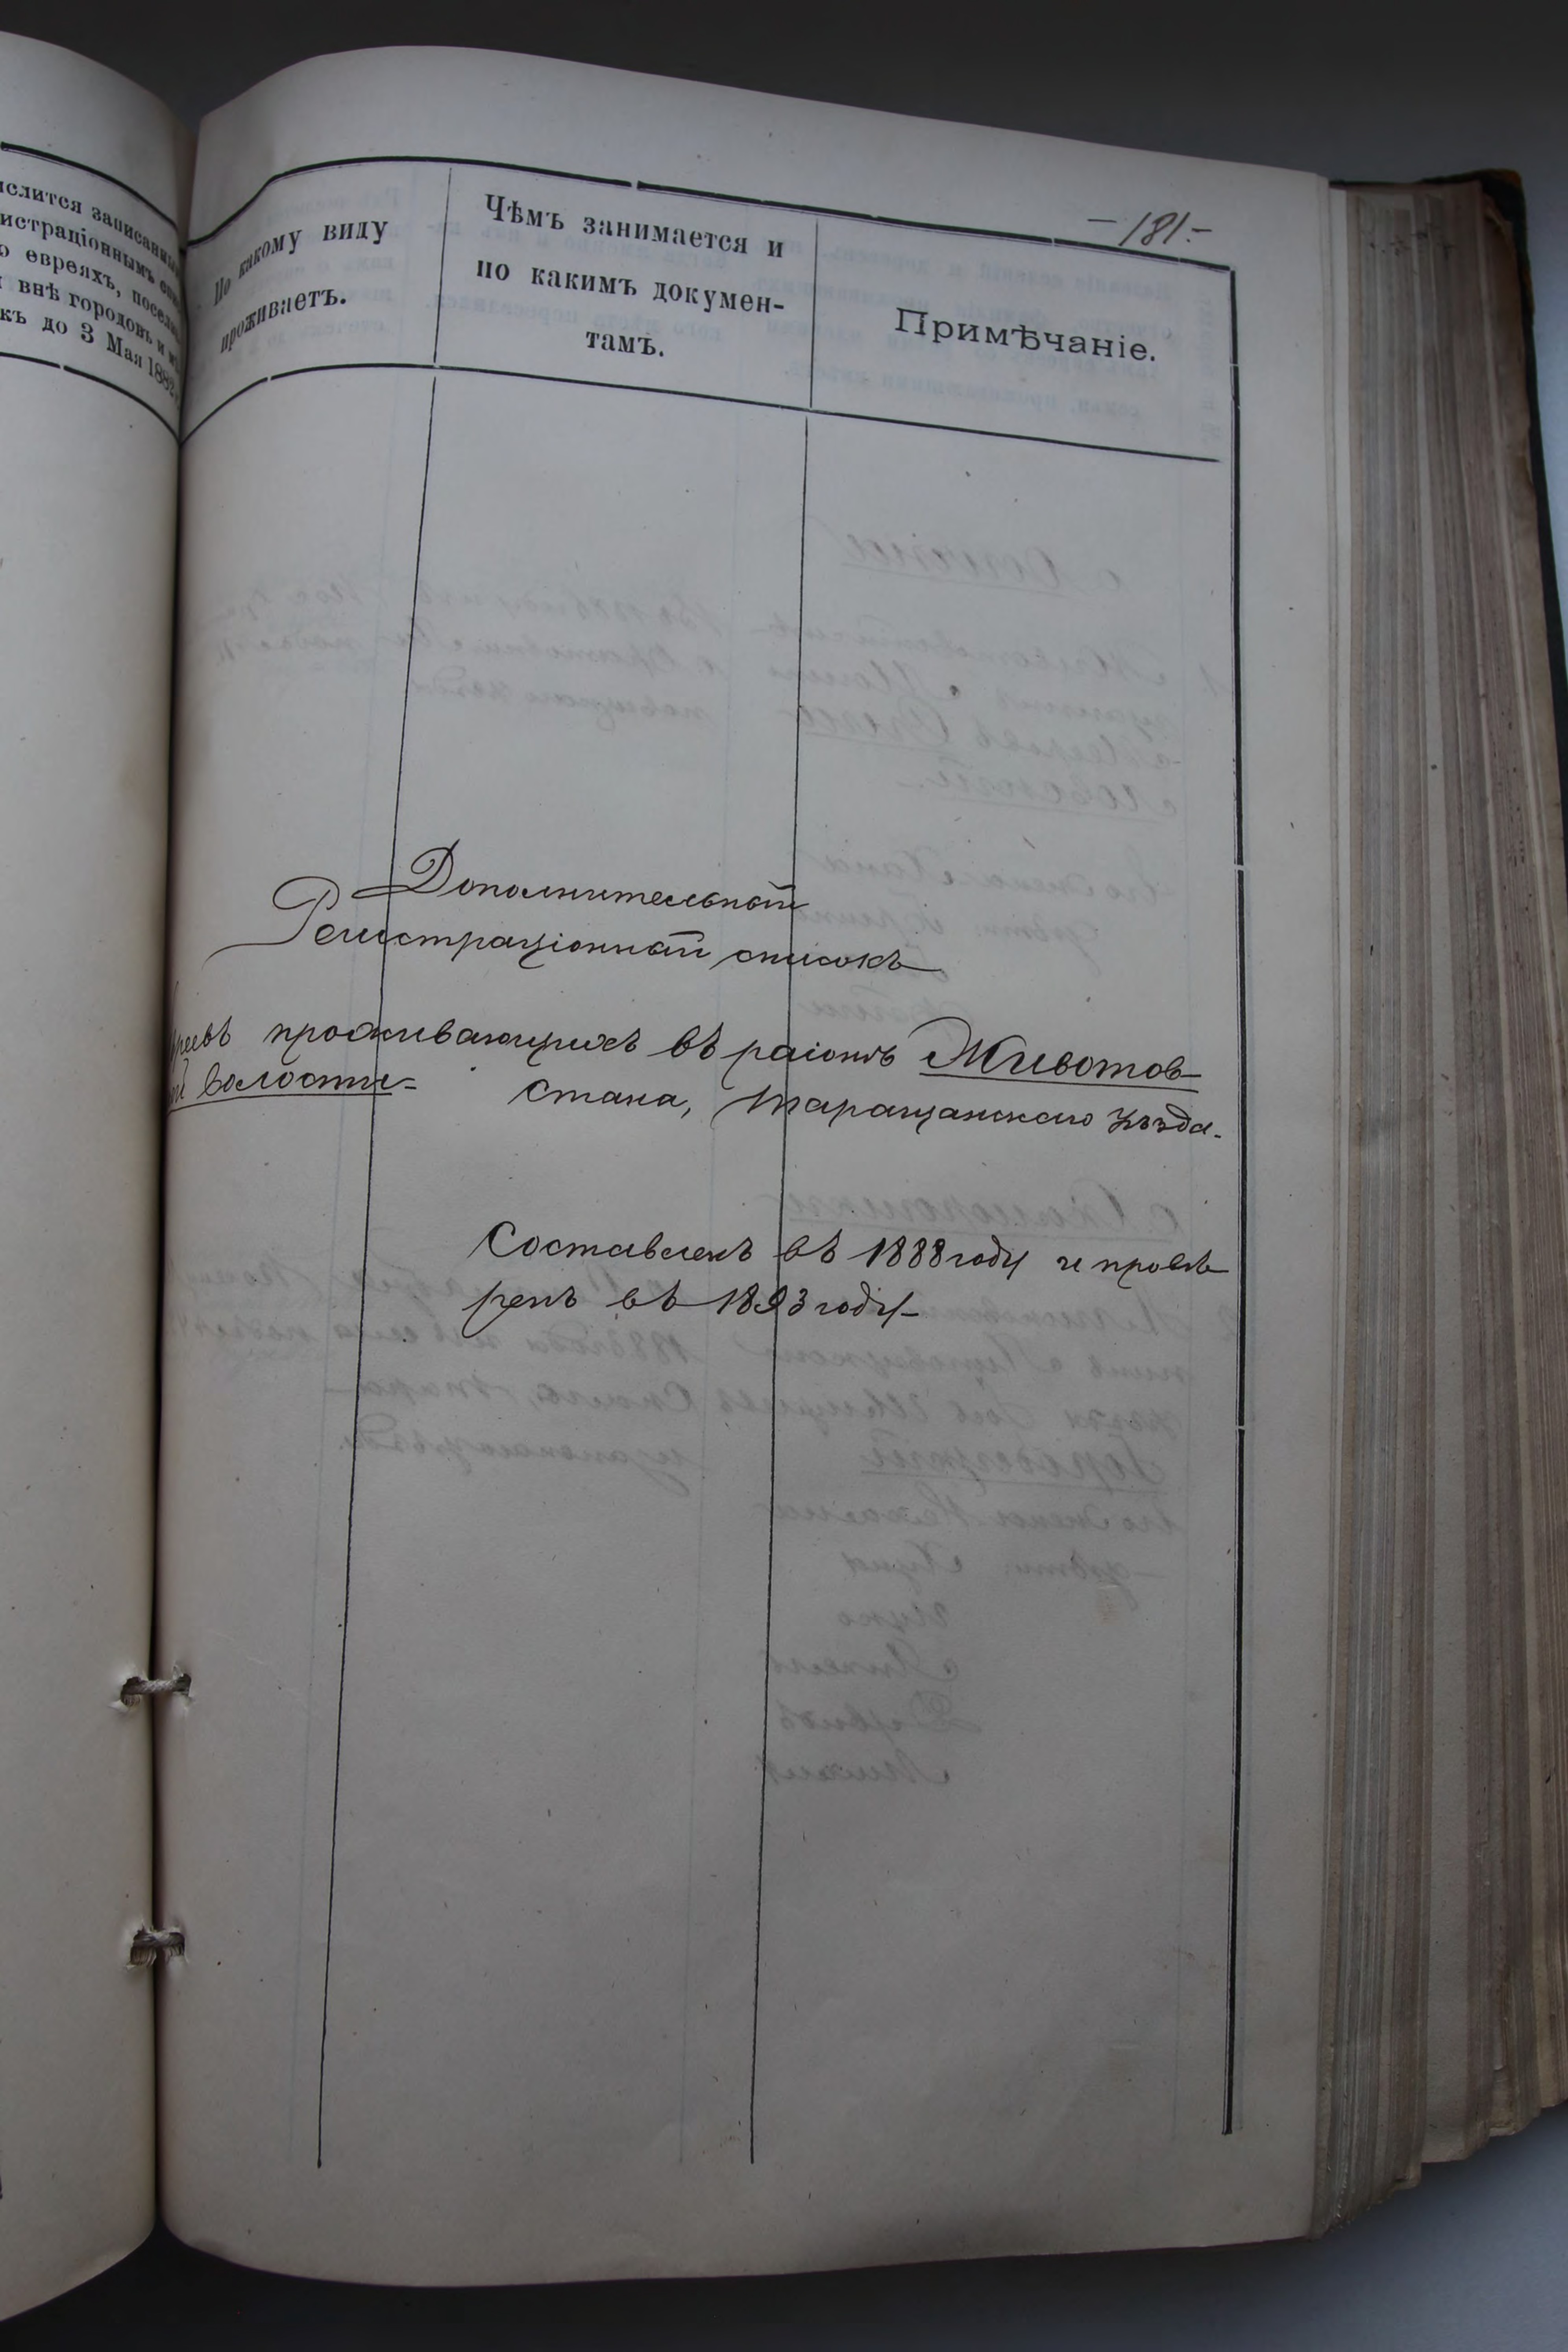 числится записанны
истраціоннымъ спи
о евреяхъ, поселив
внѣ городовъ и мѣ
къ до 3 Мая 1882
По какому виду
проживаетъ.
Чѣмъ занимается и
по какимъ докумен-
тамъ.
Примѣчаніе.
-181.-
Дополнительный
Регистраціонный списокъ
вреевъ проживающихъ въ раіонѣ Животов-
ой волости- стана, Таращанскаго уѣзда.
Составленъ въ 1888 году и провѣ-
ренъ въ 1893 году-